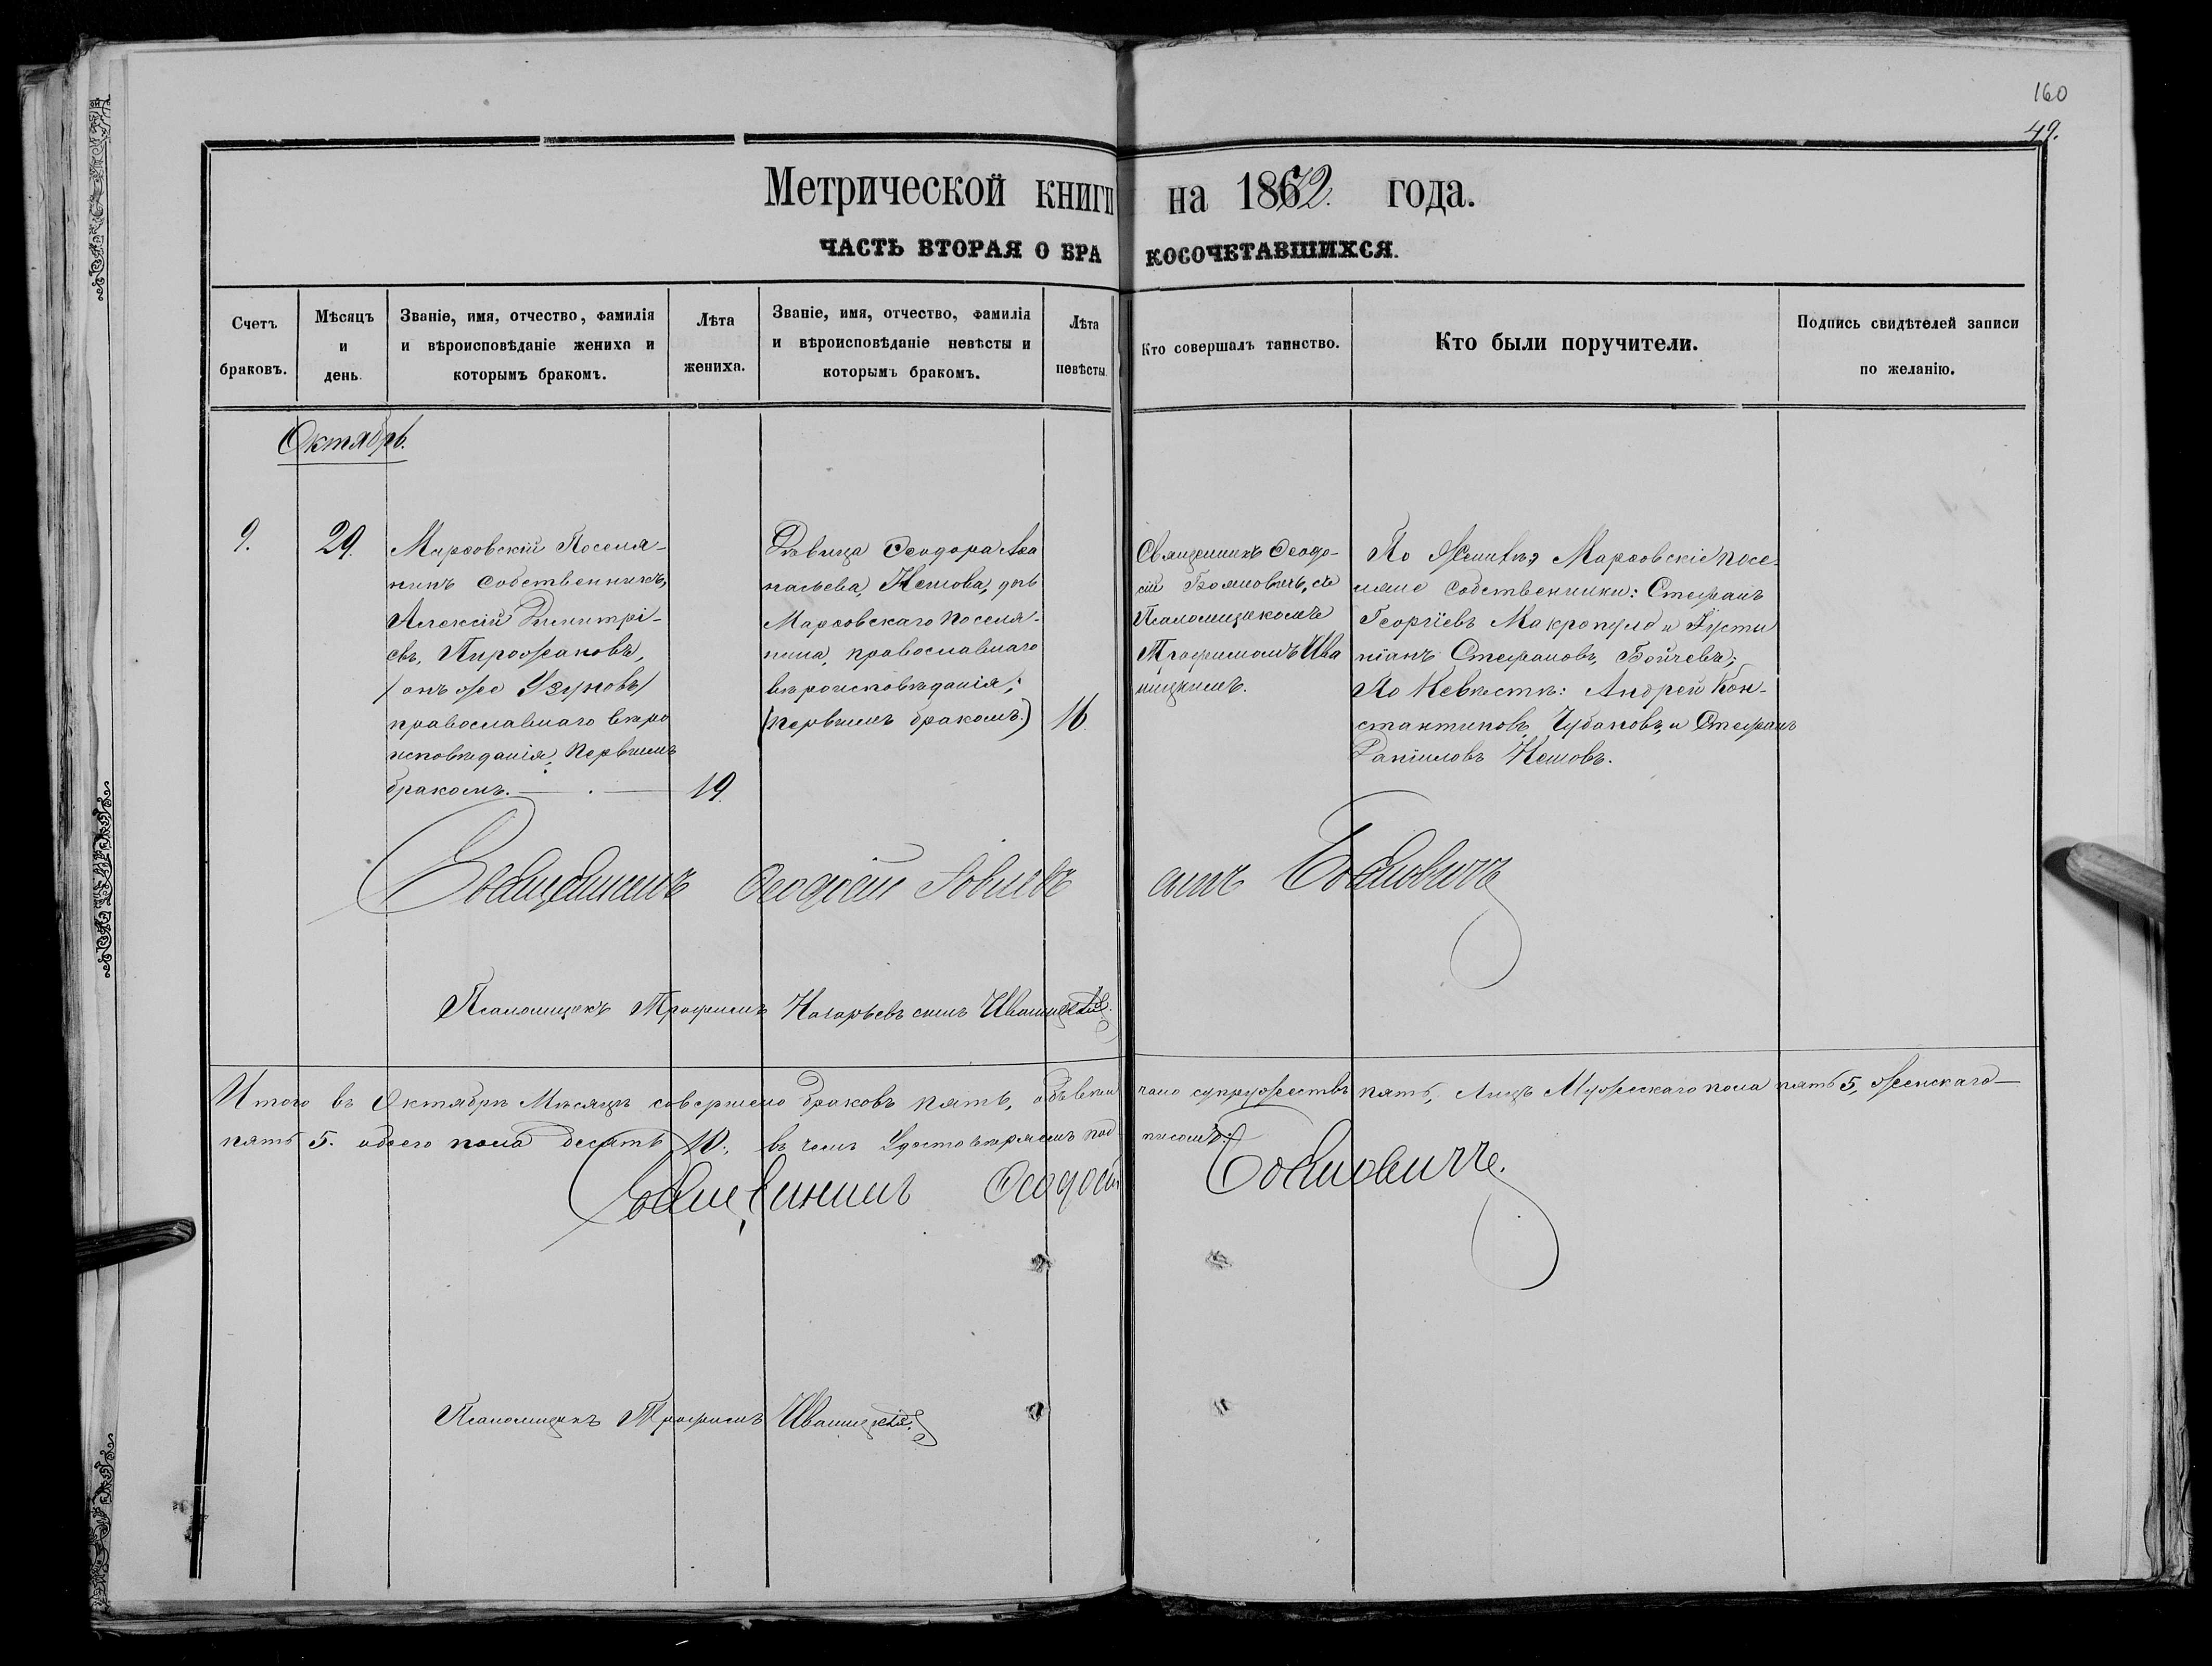 160
49.
Метрической книги на 1872. года.
ЧАСТЬ ВТОРАЯ О БРАКОСОЧЕТАВШИХСЯ.
Счетъ браковъ.
Мѣсяцъ и день.
Званіе, имя, отчество, фамилія
и вѣроисповѣданіе жениха и
которымъ бракомъ.
Лѣта жениха.
Званіе, имя, отчество, фамилія
и вѣроисповѣданіе невѣсты и
которымъ бракомъ.
Лѣта невѣсты.
Кто совершалъ таинство.
Кто были поручители.
Подпись свидѣтелей записи
по желанію.
Октябрь.
9.
29.
Парѳовскій Поселя-
нинъ Собственникъ,
Алексій Димитрі-
евъ,
/онъ же Узуновъ/
православнаго вѣро
исповѣданія, первымъ
бракомъ.
19.
Дѣвица Ѳеодора Аѳа
насьева, Нешова, дочь
поселя-
нина, православнаго
вѣроисповѣданія;
(первымъ бракомъ.)
16.
Священникъ Ѳеодо-
сій Бояновичъ, съ
Псаломщикомъ
Трофимомъ Ива
ницкимъ.
По Женихѣ, посе-
ляне собственники: Стефанъ
Георгіевъ Макропуло и Іусти
ніанъ Стефановъ, Бойчевъ;
По Невѣстѣ: Андрей Кон-
стантиновъ, Чубановъ, и Стефанъ
Даніиловъ Нешовъ.
Священникъ Ѳеодосій Іовлевъ сынъ Бояновичъ
Псаломщикъ Трофимъ Назарьевъ сынъ Иваницкій.
Итого въ Октябрѣ Мѣсяцѣ совершено браковъ пять, обвѣнчано супружествъ пять, Лицъ Мужескаго пола пять 5, женскаго
пять 5. обоего пола десять 10., въ чемъ Удостовѣряемъ подписомъ:
Священникъ Ѳеодосій Бояновичъ.
Псаломщикъ Трофимъ Иваницкій.